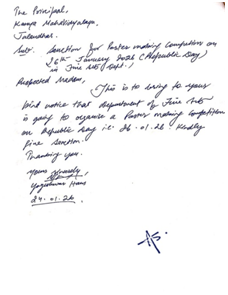 The Principal,
Kanya Mahavidyalaya,
Jalandhar.
Sub: Sanction for Poster making Competition on
26th January 2026 (Republic Day)
in Fine Arts Deptt.
Respected Madam,
This is to bring to your
kind notice that department of Fine Arts
is going to organise a Poster making Competition
on Republic Day i.e. 26.01.26. Kindly
give Sanction.
Thanking you.
Yours sincerely
24.01.26